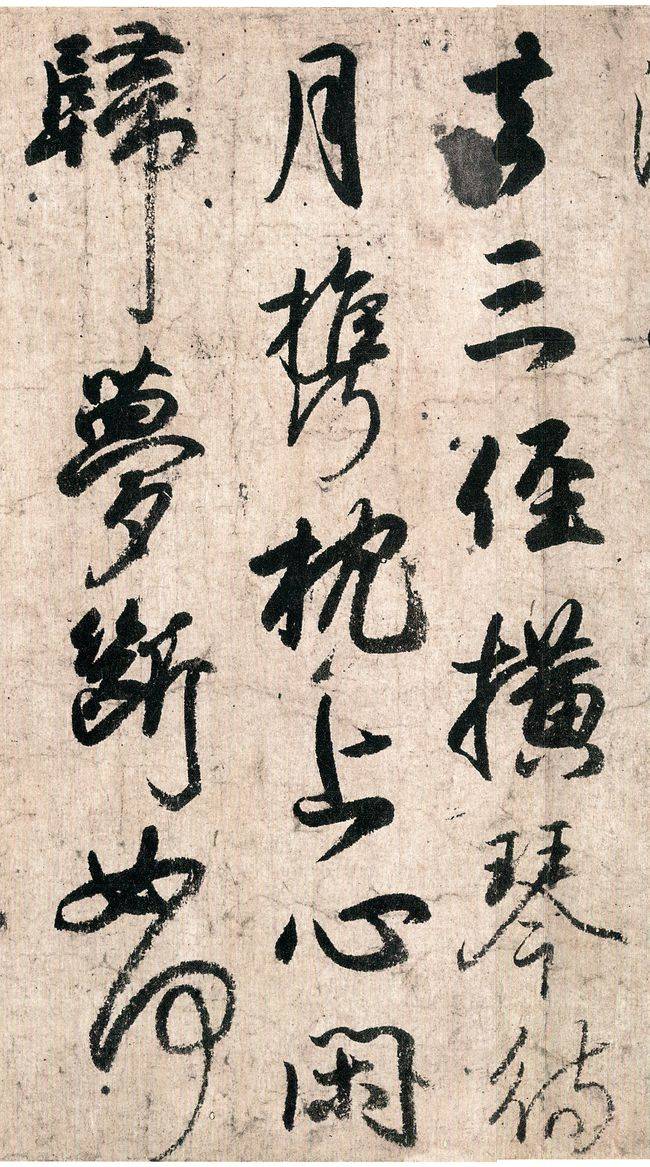 去三徑橫琴待
月攜枕上心閑
歸夢斷如何